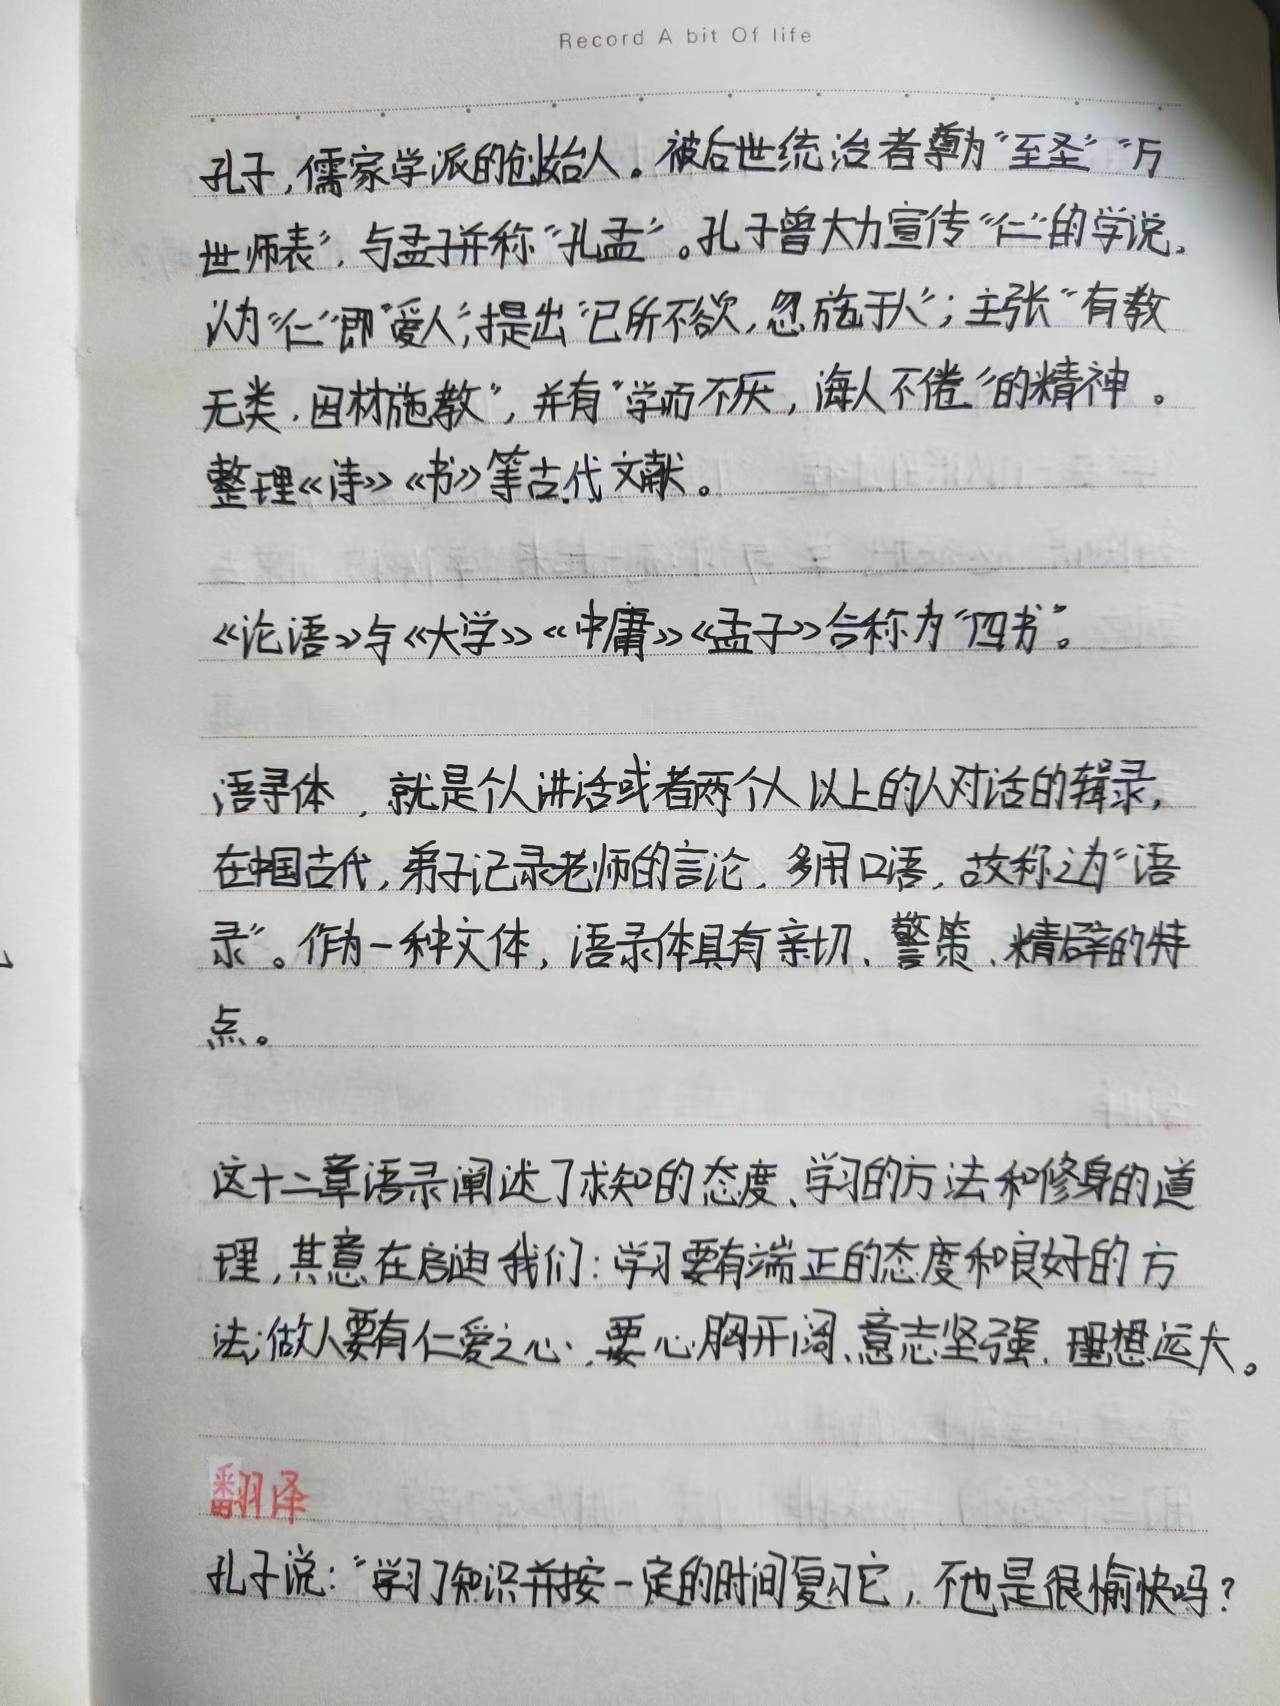 Record A bit Of life
孔子，儒家学派的创始人。被后世统治者尊为“至圣”“万
世师表”，与孟子并称“孔孟”。孔子曾大力宣传“仁”的学说，
认为“仁”即“爱人”，提出“己所不欲，忽施于人”；主张“有教
无类，因材施教”，并有“学而不厌，海人不倦”的精神。
整理《诗》《书》等古代文献。
《论语》与《大学》《中庸》《孟子》合称为“四书”。
语录体，就是个人讲话或者两个人以上的人对话的辑录，
在中国古代，弟子记录老师的言论，多用口语，故称之为“语
录”。作为一种文体，语录体具有亲切、警策、精辟的特
点。
这十二章语录阐述了求知的态度、学习的方法和修身的道
理，其意在启迪我们：学习要有端正的态度和良好的方
法；做人要有仁爱之心，要心胸开阔、意志坚强、理想远大。
翻译
孔子说：“学习了知识并按一定的时间复习它，不也是很愉快吗？